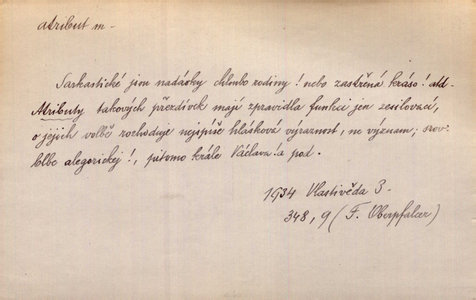 atribut m –
Sarkastické jsou nadávky chlubo rodiny! nebo zastřená kráso! atd.
Atributy takových přezdívek mají zpravidla funkci jen zesilovací,
o jejich volbě rozhoduje nejspíše hlásková výraznost, ne význam; srov.
blbe alegorickej!, pitomo krále Václava! a pod.
1934 Vlastivěda 3.
348, 9 (F. Oberpfalcer)